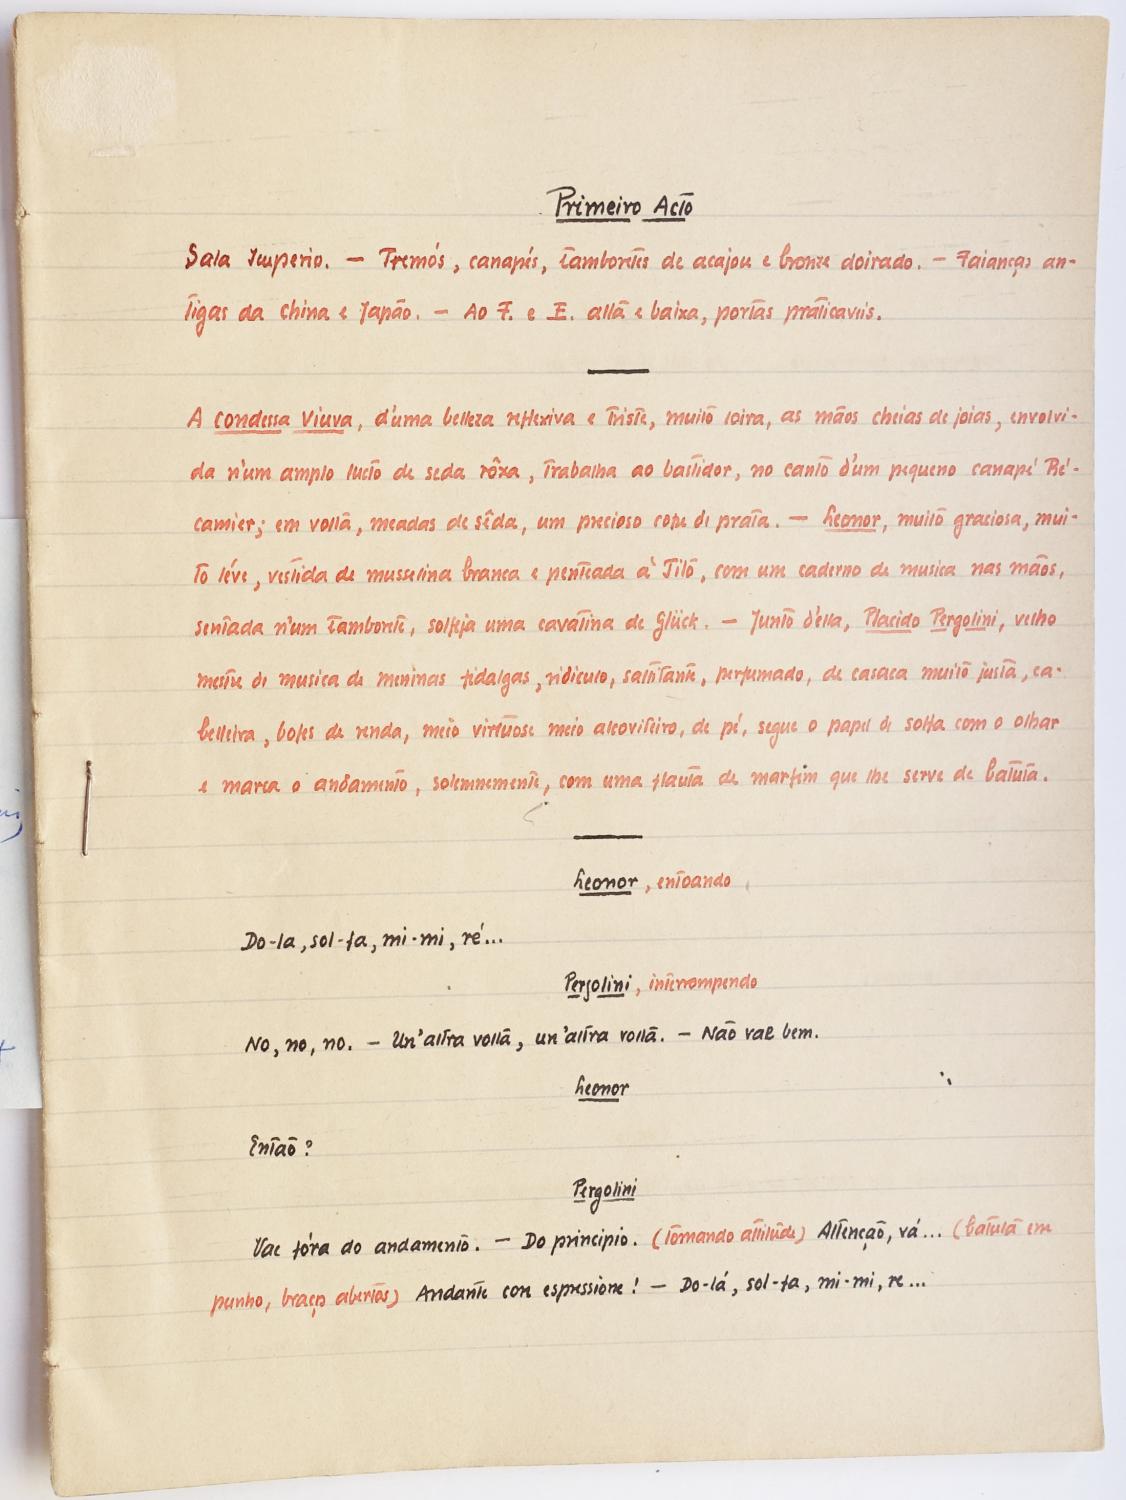 Primeiro Acto
Sala Imperio. — Tremós, canapés, tamboretes de acajou e bronze doirado. — Faianças an-
tigas da China e Japão. — Ao F. e E. alta e baixa, portas praticaveis.
A Condessa Viuva, d'uma belleza reflexiva e triste, muito loira, as mãos cheias de joias, envolvi-
da n'um amplo lucto de seda rôxa, trabalha ao bastidor, no canto d'um pequeno canapé Ré-
camier; em volta, meadas de sêda, um precioso cofre de prata. — Leonor, muito graciosa, mui-
to léve, vestida de musselina branca e penteada à Tito, com um caderno de musica nas mãos,
sentada n'um tamborete, solfeja uma cavatina de Glück. — Junto d'ella, Placido Pergolini, velho
mestre de musica de meninas fidalgas, ridiculo, saltitante, perfumado, de casaca muito justa, ca-
belleira, bofes de renda, meio virtuose meio alcoviteiro, de pé, segue o papel de solfa com o olhar
e marca o andamento, solemnemente, com uma flauta de marfim que lhe serve de batuta.
Leonor, entoando
Do-la, sol-fa, mi-mi, ré...
Pergolini, interrompendo
No, no, no. — Un'altra volta, un'altra volta. — Não vae bem.
Leonor
Então?
Pergolini
Vae fóra do andamento. — Do principio. (tomando attitude) Attenção, vá... (batuta em
punho, braços abertos) Andante con espressione! — Do-lá, sol-fa, mi-mi, re...